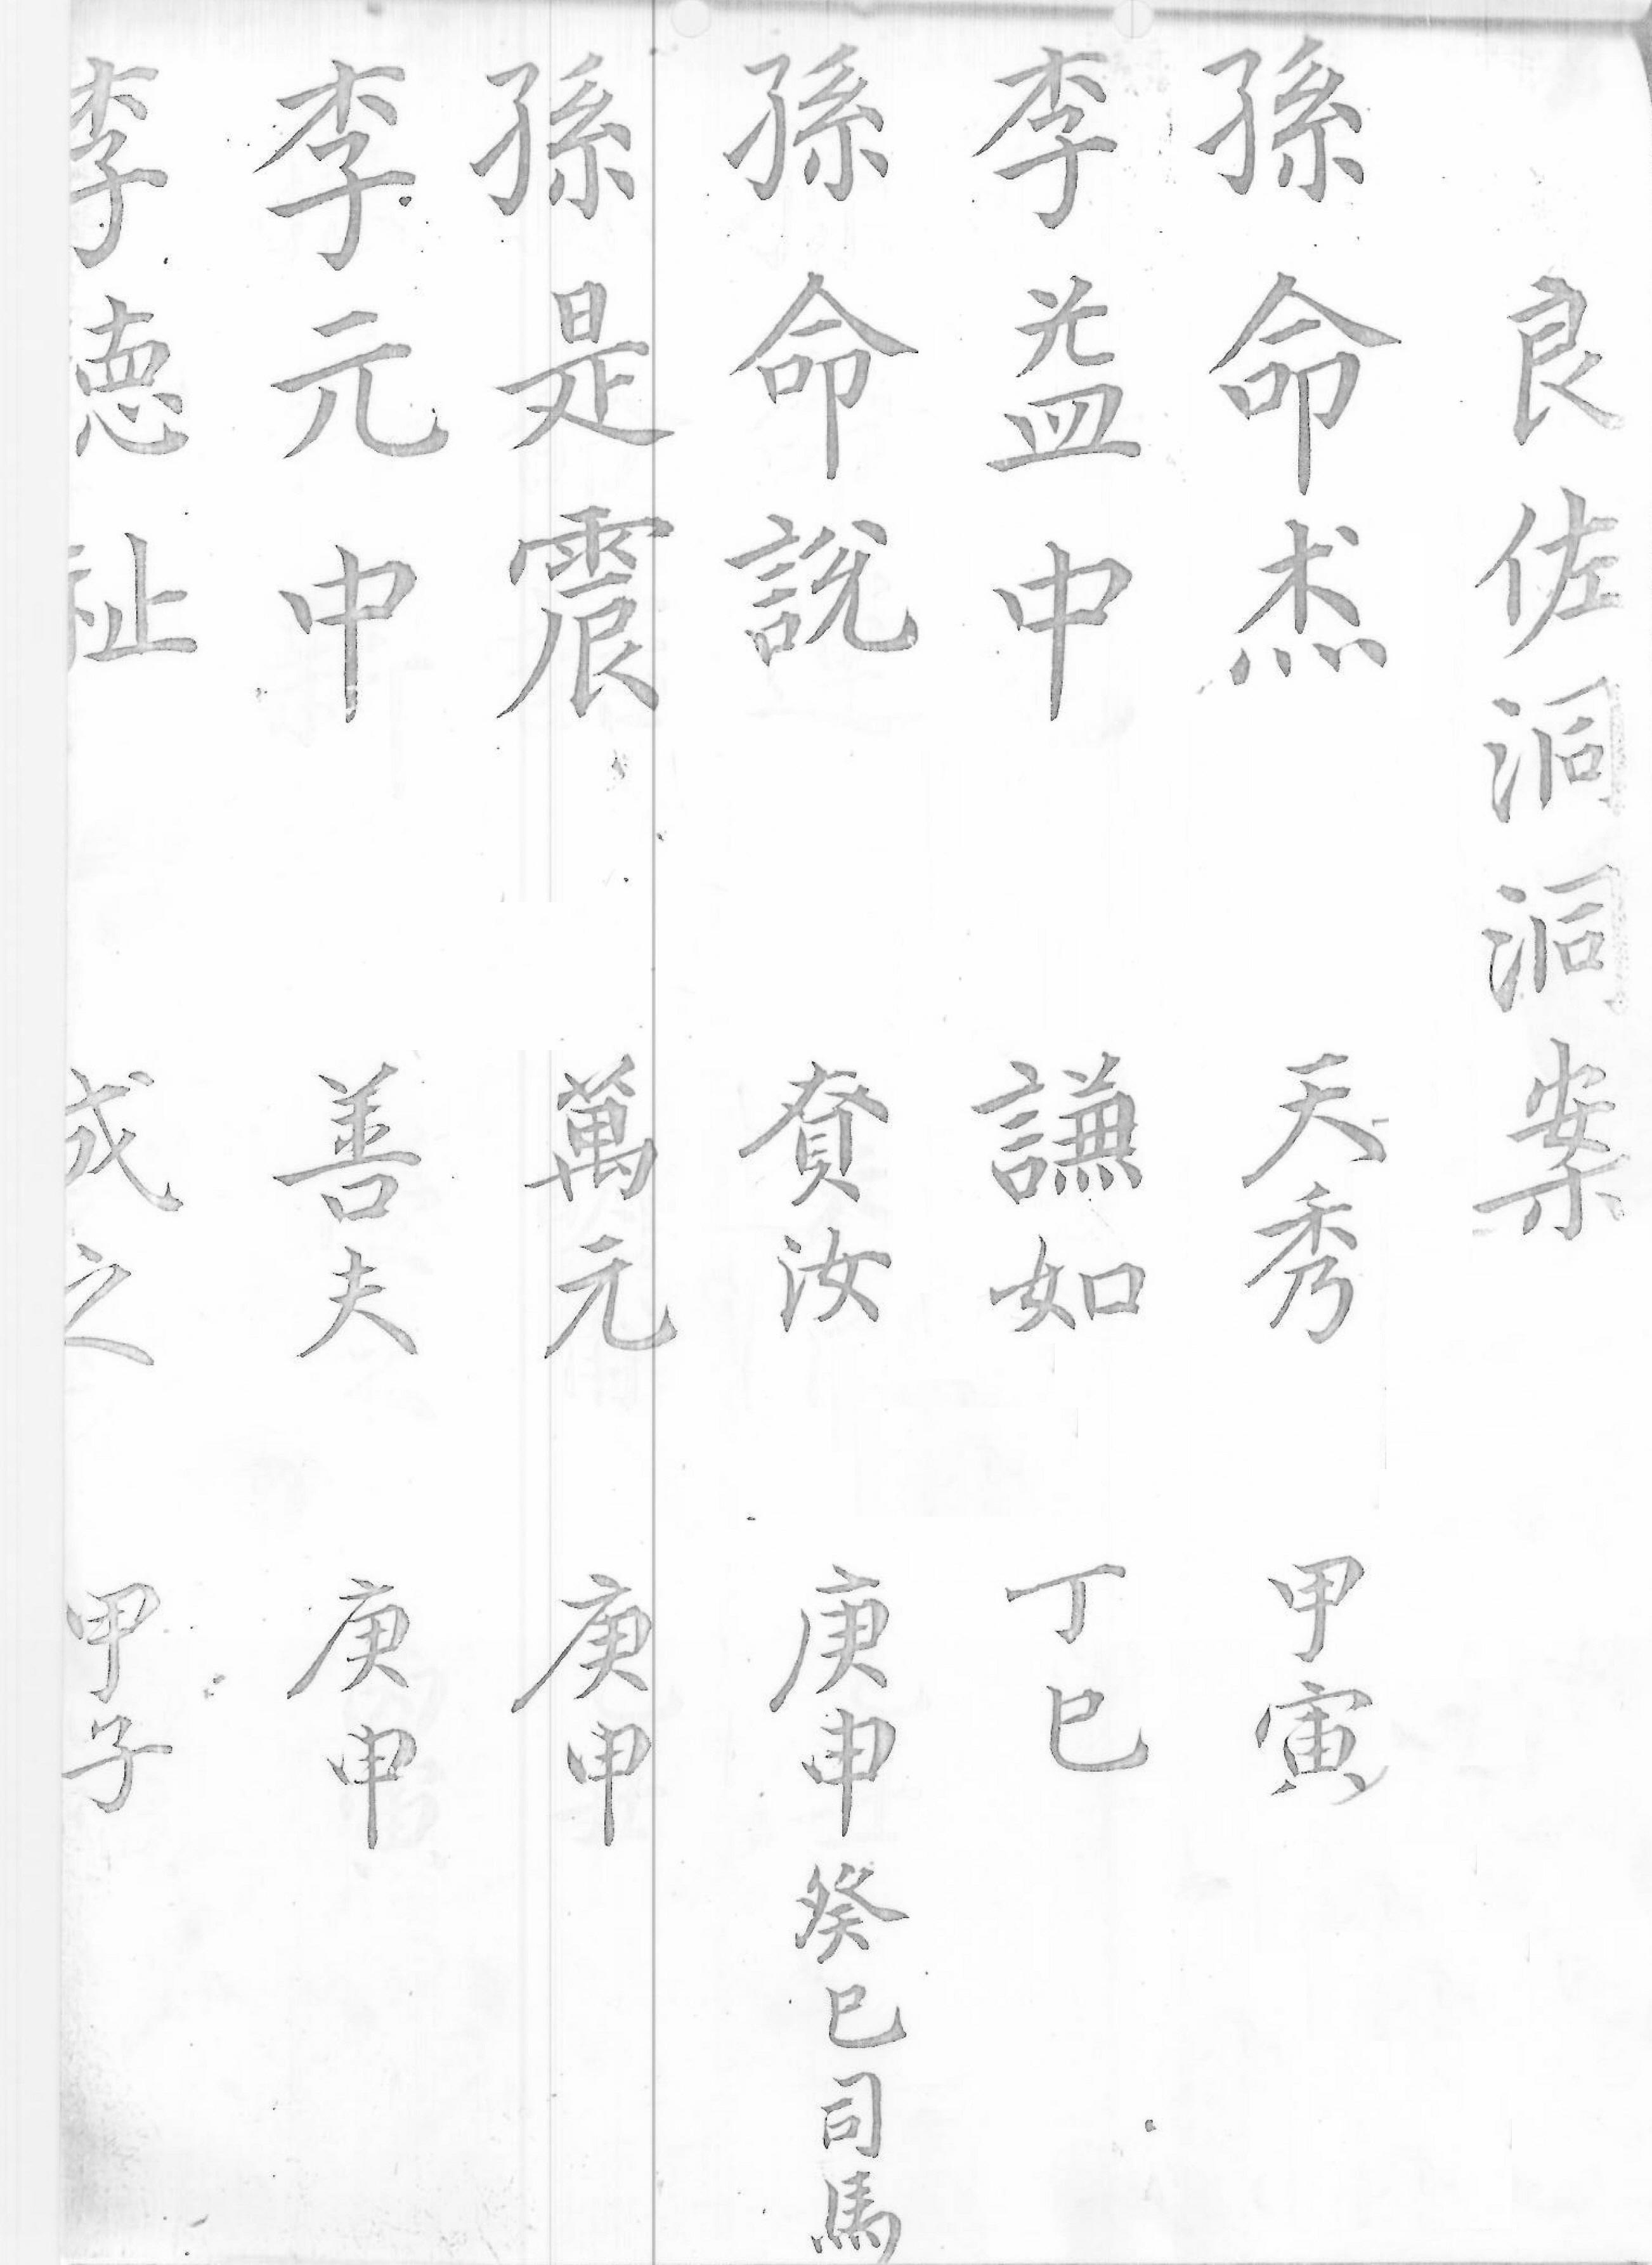 良佐洞洞案
孫命杰 天秀 甲寅
李益中 謙如 丁巳
孫命說 賚汝 庚申 癸巳司馬
孫是震 萬元 庚申
李元中 善夫 庚申
李德祉 成之 甲子